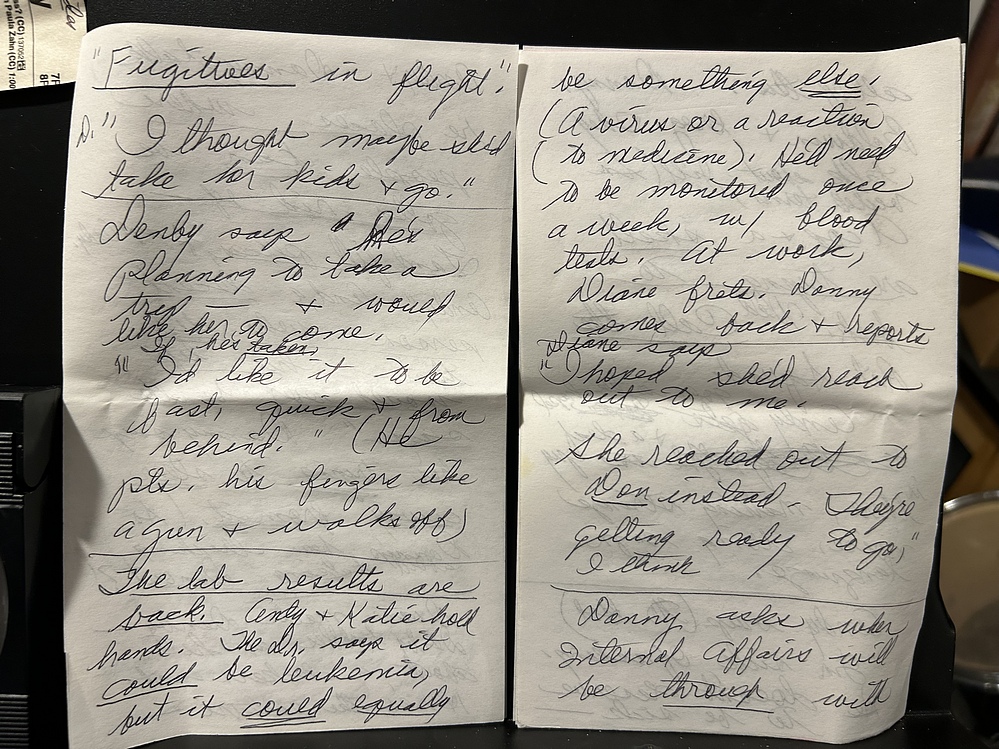 "Fugitives in flight."
D. "I thought maybe she'd
take her kids + go."
Denby says "He's
planning to take a
trip — + would
like her to come.
If he's taken,
"I'd like it to be
fast, quick + from
behind." (He
pts. his fingers like
a gun + walks off)
The lab results are
back. Andy + Katie hold
hands. The Dr. says it
could be leukemia,
but it could equally
be something else.
(A virus or a reaction
(to medicine). He'll need
to be monitored once
a week, w/ blood
tests. At work,
Diane frets. Danny
comes back + reports
Diane says
"I hoped she'd reach
out to me.
She reached out to
Don instead. They're
getting ready to go,"
I think
Danny asks when
Internal Affairs will
be through with
? (CC) 137052
n Paula Zahn (CC) 1:00